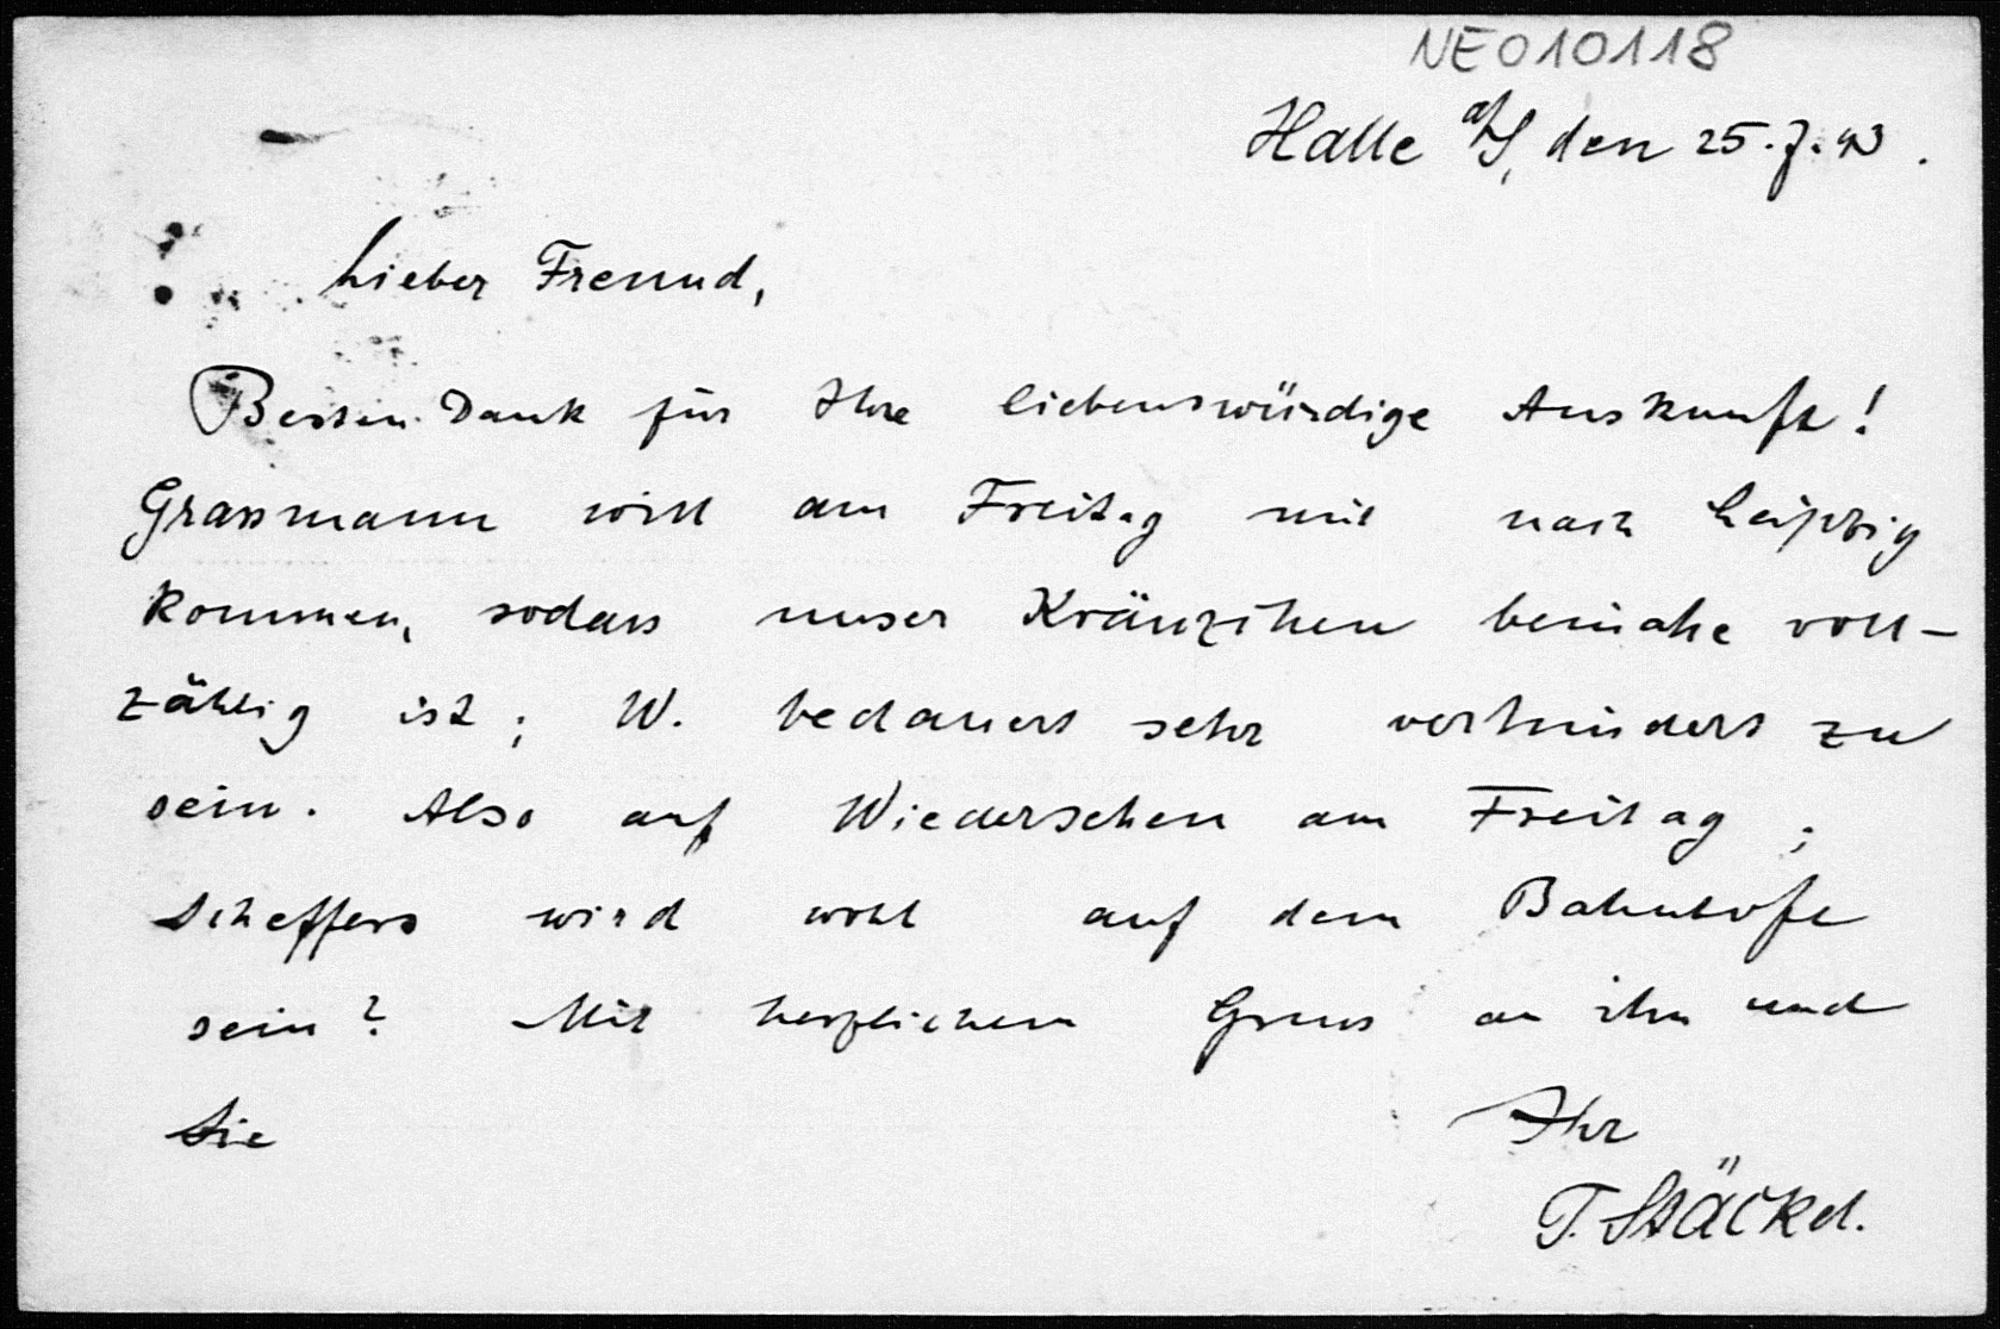 NE010118
Halle a/S, den 25.7.93.
Lieber Freund,
Besten Dank für Ihre liebenswürdige Auskunft!
Grassmann will am Freitag mit nach Leipzig
kommen, sodass unser Kränzchen beinahe voll-
zählig ist; W. bedauert sehr verhindert zu
sein. Also auf Wiedersehen am Freitag;
Scheffers wird wohl auf dem Bahnhofe
sein? Mit herzlichem Gruss an ihn und
Sie Ihr
P. Stäckel.